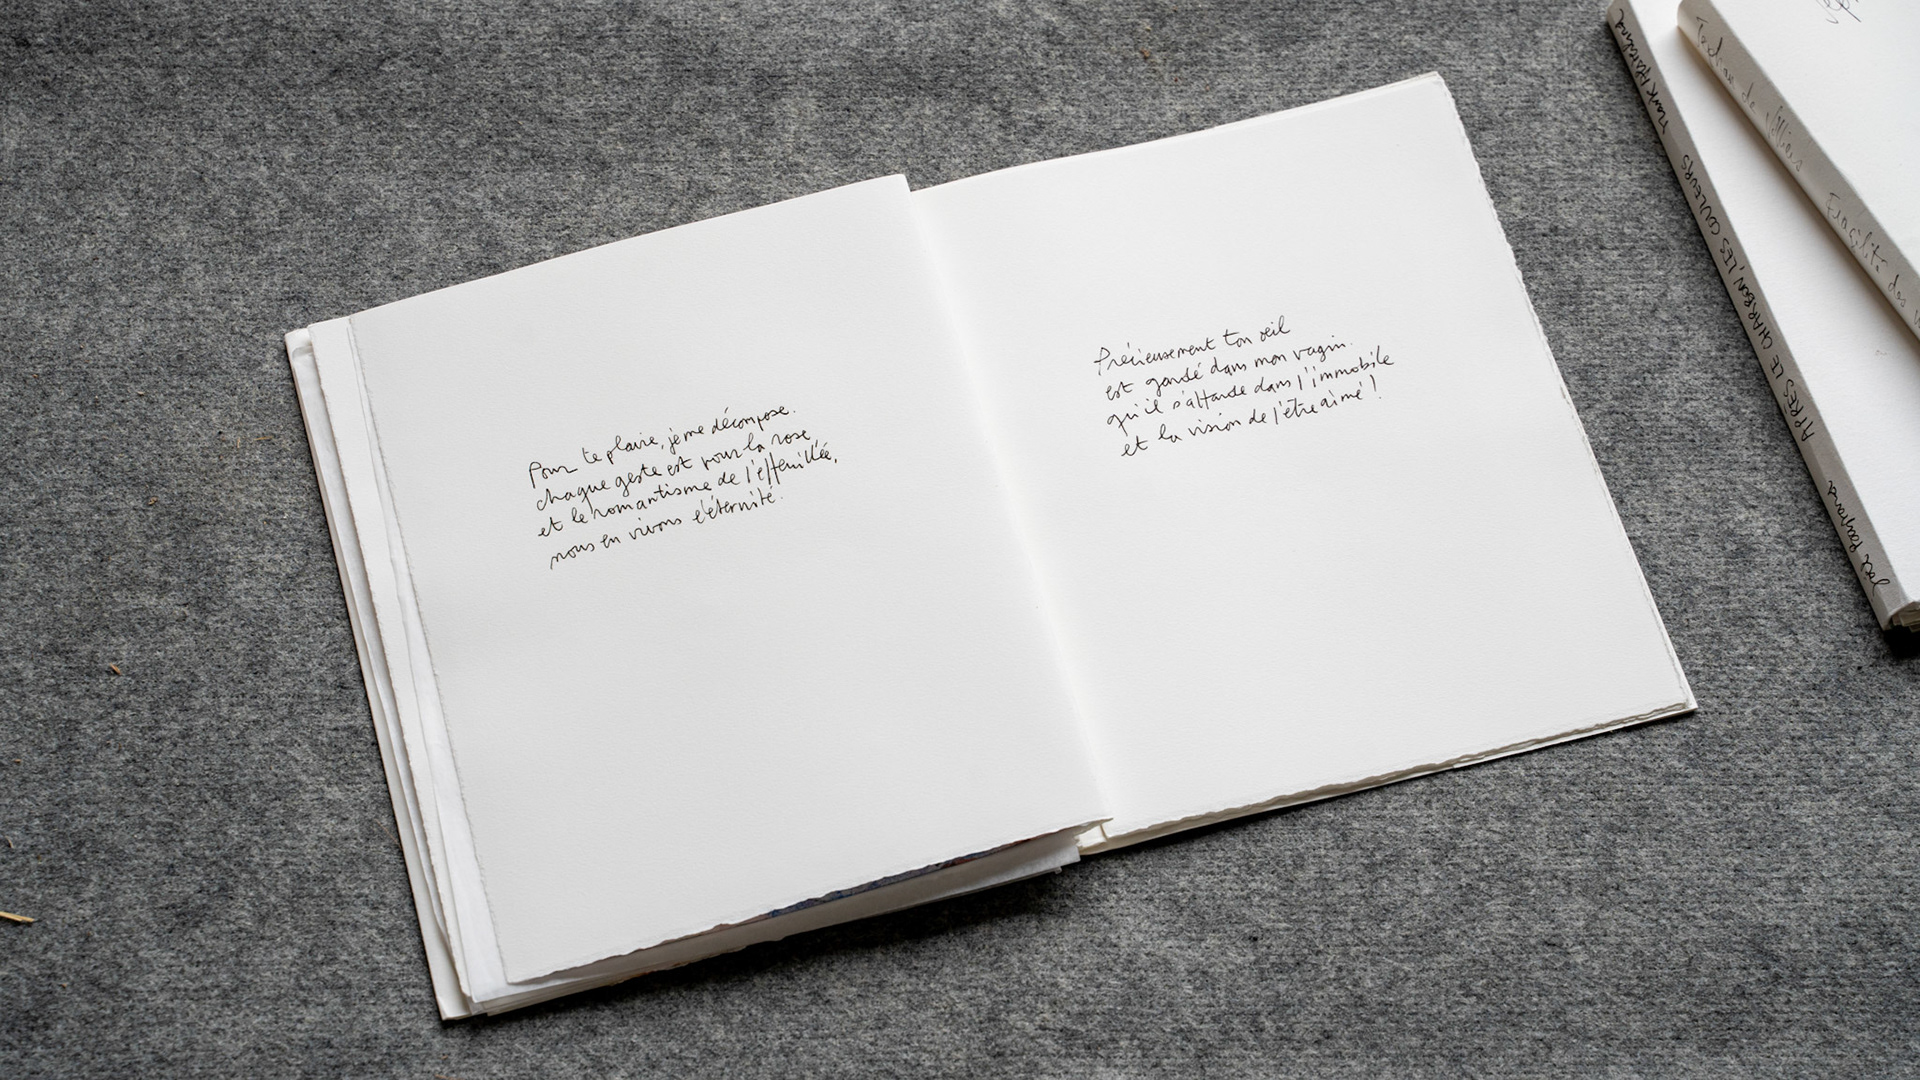 Pour te plaire, je me décompose.
chaque geste est pour la rose
et le romantisme de l'effeuillée,
nous en vivons l'éternité.
Précieusement ton œil
est gardé dans mon vagin.
qu'il s'attarde dans l'immobile
et la vision de l'être aimé !
APRÈS LE CHARBON, LES COULEURS
de
Fragilité des